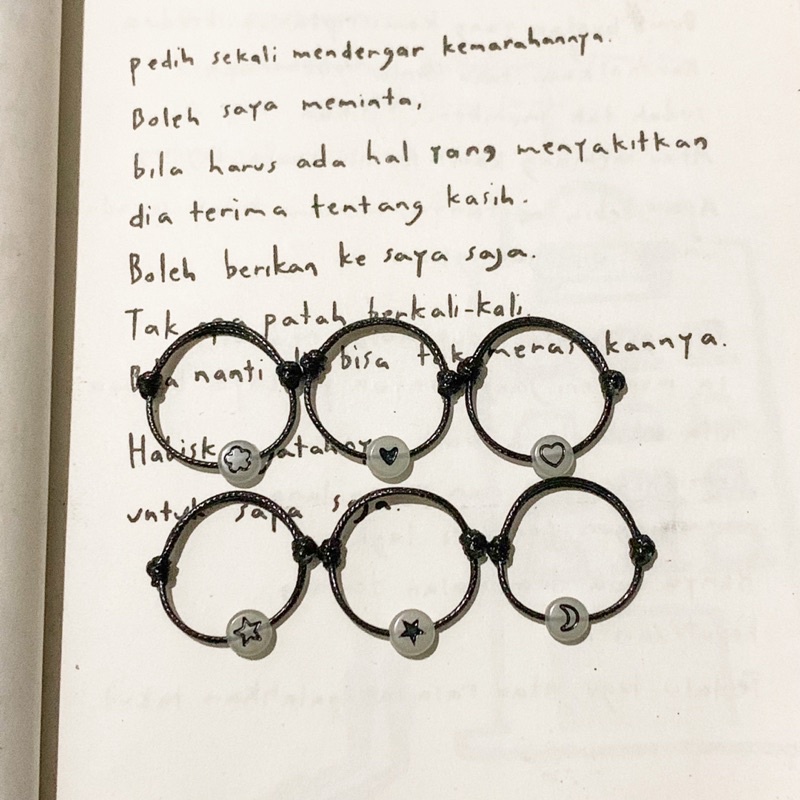 pedih sekali mendengar kemarahannya.
Boleh saya meminta,
bila harus ada hal yang menyakitkan
dia terima tentang kasih.
Boleh berikan ke saya saja.
Tak patah berkali-kali.
nanti bisa kannya.
untuk saya saja.